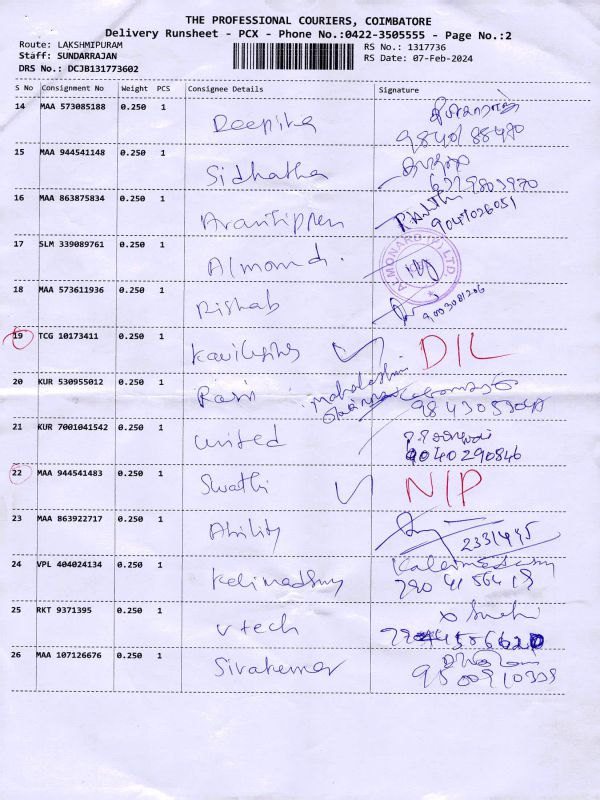 THE PROFESSIONAL COURIERS, COIMBATORE
Delivery Runsheet - PCX - Phone No.:0422-3505555 - Page No.:2
Route: LAKSHMIPURAM RS No.: 1317736
Staff: SUNDARRAJAN RS Date: 07-Feb-2024
DRS No.: DCJB131773602
S No Consignment No Weight PCS Consignee Details Signature
14 MAA 573085188 0.250 1
Deepika
15 MAA 944541148 0.250 1
Sidhatha
16 MAA 863875834 0.250 1
9047026051
17 SLM 339089761 0.250 1
Almond.
MONARG (P) LTD
18 MAA 573611936 0.250 1
Rishab 9003081206
19 TCG 10173411 0.250 1
DIL
20 KUR 530955012 0.250 1
Rasi
21 KUR 7001041542 0.250 1
United
9040290846
22 MAA 944541483 0.250 1
Swathi N/P
23 MAA 863922717 0.250 1
Ability 2331495
24 VPL 404024134 0.250 1
25 RKT 9371395 0.250 1
Vtech
26 MAA 107126676 0.250 1
Sivakumar